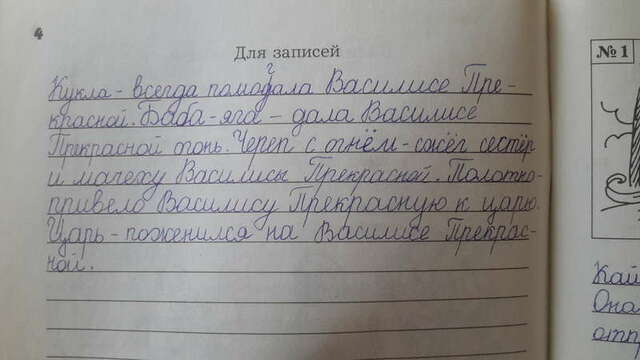 4
Для записей
Кукла - всегда помогала Василисе Пре-
красной. Баба-яга - дала Василисе
Прекрасной огонь. Череп с огнём - сжёг сестёр
и мачеху Василисы Прекрасной. Полотно-
привело Василису Прекрасную к царю.
Царь - поженился на Василисе Прекрас-
ной.
№ 1
Кай
Она
отпр